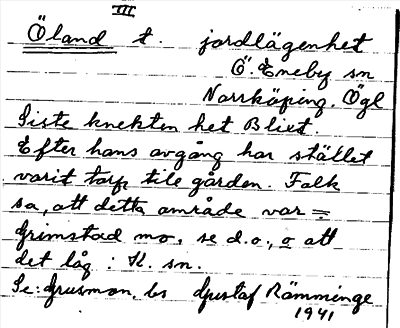 III
Öland t. jordlägenhet
Ö. Eneby sn
Norrköping, Ögl
Siste knekten het Blixt.
Efter hans avgång har stället
varit torp till gården. Folk
sa, att detta område var =
Grimstad mo, se d.o., o att
det låg i K. sn.
Se: Grusmon, bs Gustaf Rämminge
1941